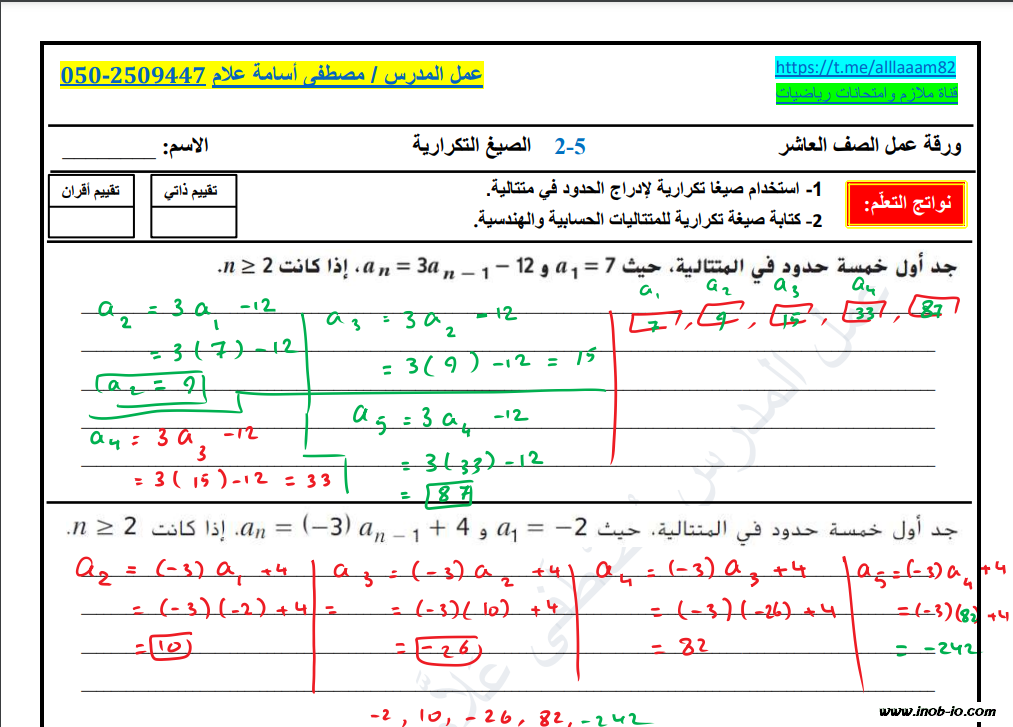 عمل المدرس / مصطفى أسامة علام 050-2509447
https://t.me/alllaaam82
قناة ملازم وامتحانات رياضيات
ورقة عمل الصف العاشر 2-5 الصيغ التكرارية الاسم: ________
نواتج التعلّم:
1- استخدام صيغا تكرارية لإدراج الحدود في متتالية.
2- كتابة صيغة تكرارية للمتتاليات الحسابية والهندسية.
تقييم ذاتي
تقييم أقران
جد أول خمسة حدود في المتتالية، حيث a₁ = 7 و aₙ = 3aₙ₋₁ − 12، إذا كانت n ≥ 2.
a₁ a₂ a₃ a₄
7, 9, 15, 33, 87
a₂ = 3a₁ -12
= 3(7) -12
a₂ = 9
a₃ = 3a₂ -12
= 3(9) -12 = 15
a₄ = 3a₃ -12
= 3(15) -12 = 33
a₅ = 3a₄ -12
= 3(33) -12
= 87
جد أول خمسة حدود في المتتالية، حيث a₁ = −2 و aₙ = (−3) aₙ₋₁ + 4، إذا كانت n ≥ 2.
a₂ = (-3) a₁ +4
= (-3)(-2) +4 =
= 10
a₃ = (-3) a₂ +4
= (-3)(10) +4
= -26
a₄ = (-3) a₃ +4
= (-3)(-26) +4
= 82
a₅ = (-3) a₄ +4
= (-3)(82) +4
= -242
-2, 10, -26, 82, -242
عمل المدرس / مصطفى علام
www.inob-io.com